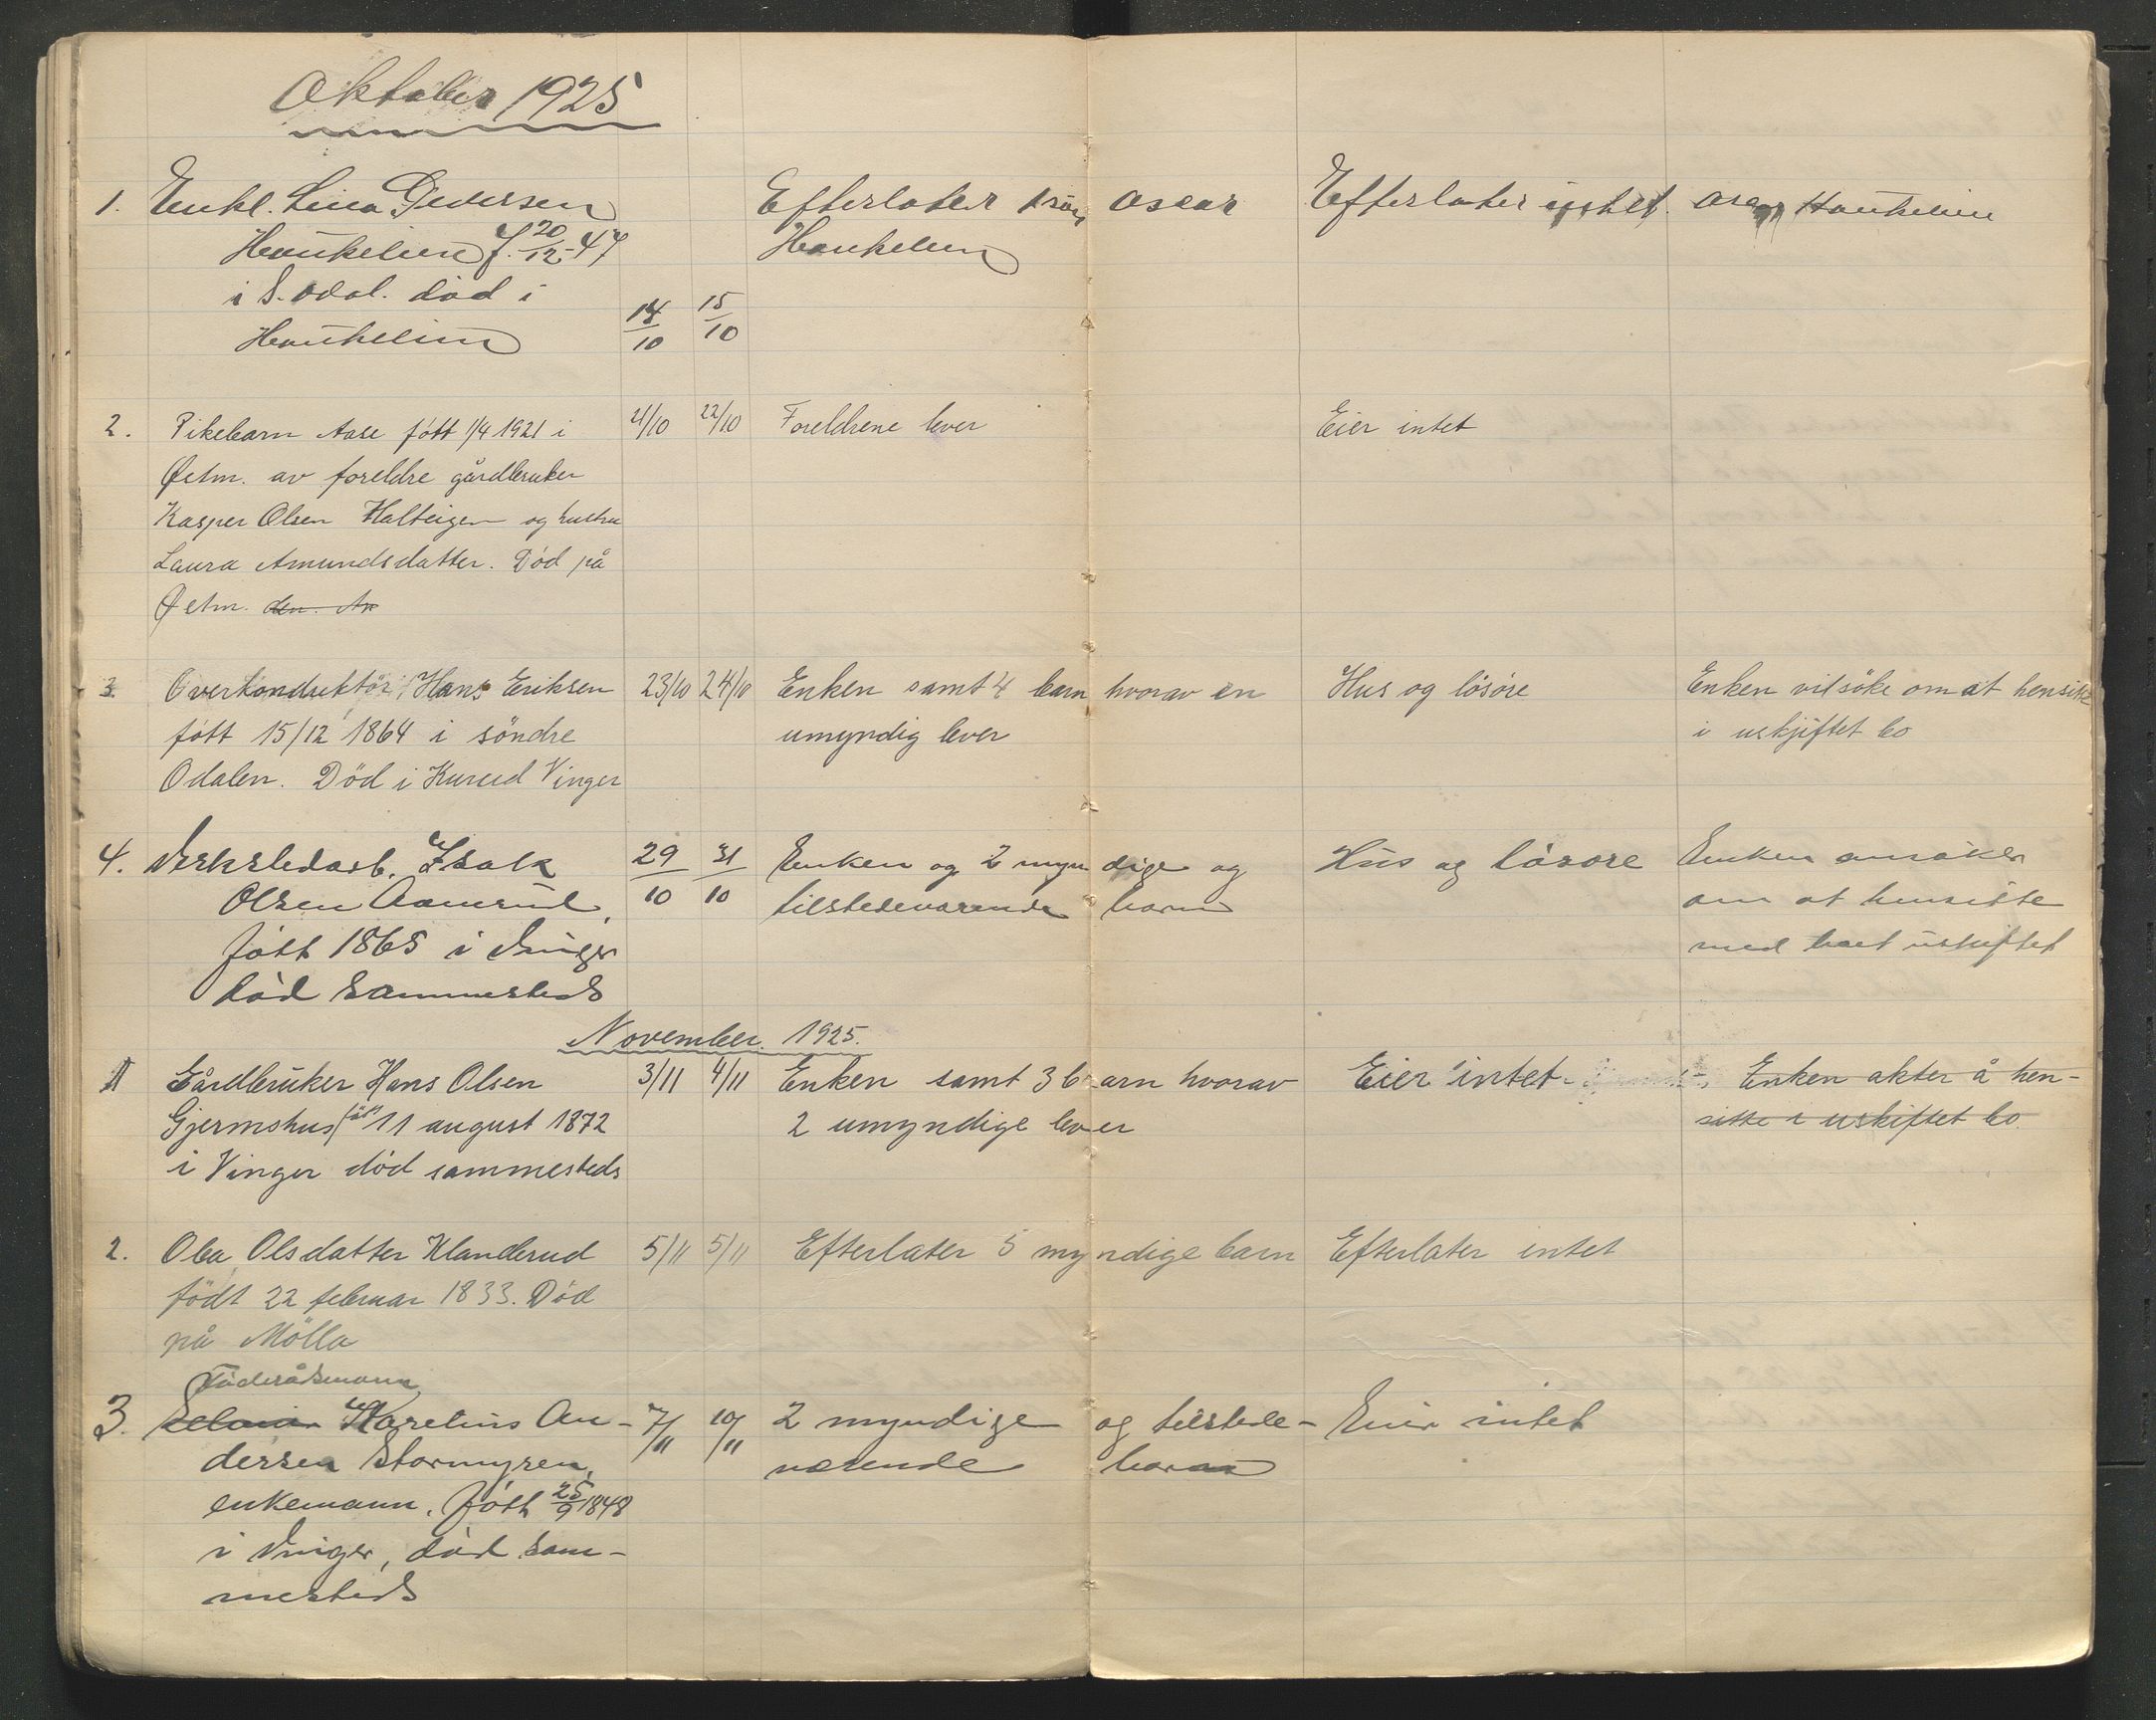 Oktober 1925
1. Enkl. Lina Pedersen 	Efterlater 1 søn Oscar 	Efterlater intet. Oscar Haukelien
Haukelien f. 20/12-47 	Haukelien
i S. Odal. död i
Haukelien 	14/10 15/10
2. Pikebarn Aase fött 1/4 1921 i 	21/10 22/10 	Foreldrene lever 	Eier intet
Østm. av foreldre gårdbruker
Kasper Olsen Halteigen og hustru
Laura Amundsdatter. Död på
Østm. den.
3. Overkonduktör Hans Eriksen 	23/10 24/10 	Enken samt 4 barn hvorav en 	Hus og lösöre 	Enken vil söke om at hensitte
fött 15/12 1864 i söndre 	umyndig lever 	i uskjiftet bo
Odalen. Död i Kurud Vinger
4. Verkstedarb. Isak 	29/10 31/10 	Enken og 2 myndige og 	Hus og lösöre 	Enken ansöker
Olsen Aamerud, 	tilstedeværende barn 	om at hensitte
fött 1865 i Vinger 	med boet uskiftet
död sammesteds
November. 1925.
1 Gårdbruker Hans Olsen 	3/11 4/11 	Enken samt 3 barn hvorav 	Eier intet 	Enken akter å hen-
Gjermshus föd 11 august 1872 	2 umyndige lever 	sitte i uskiftet bo
i Vinger död sammesteds
2. Olea Olsdatter Klanderud 	5/11 5/11 	Efterlater 5 myndige barn 	Efterlater intet
födt 22 februar 1833. Död
på Mölla
Föderådsmann
3. Karelius An- 	7/11 10/11 	2 myndige og tilstede- 	Eier intet
dersen Stormyren, 	værende barn
enkemann. Fött 25/9 1848
i Vinger, död sam-
mesteds